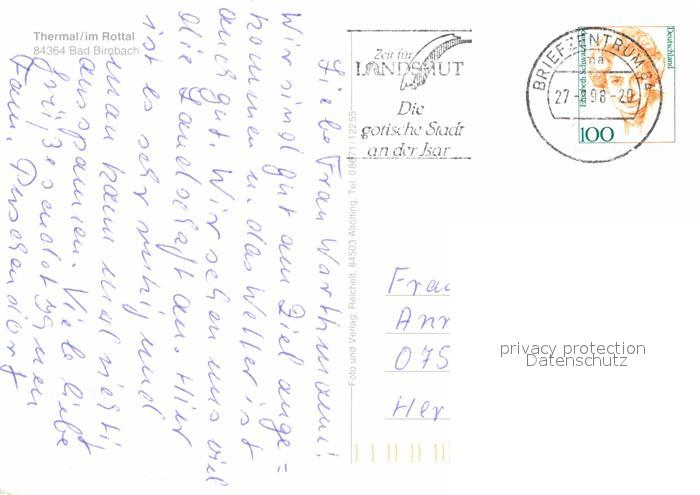 Thermal/im Rottal
84364 Bad Birnbach
Liebe Frau Warthmann!
Wir sind gut am Ziel ange=
kommen u. das Wetter ist
auch gut. Wir sehen uns viel
die Landschaft an. Hier
ist es sehr ruhig und
man kann mal richti
ausspannen. Viele liebe
Grüße sendet Ihnen
Fam.
Foto und Verlag: Reichelt, 84503 Altötting, Tel. 08671/12255
Zeit für
LANDSHUT
Die
gotische Stadt
an der Isar
BRIEFZENTRUM 84
ma
27.-8.98-20
Deutschland
Elisabeth Schwarzhaupt
100
Frau
Ann
075
Her
privacy protection
Datenschutz